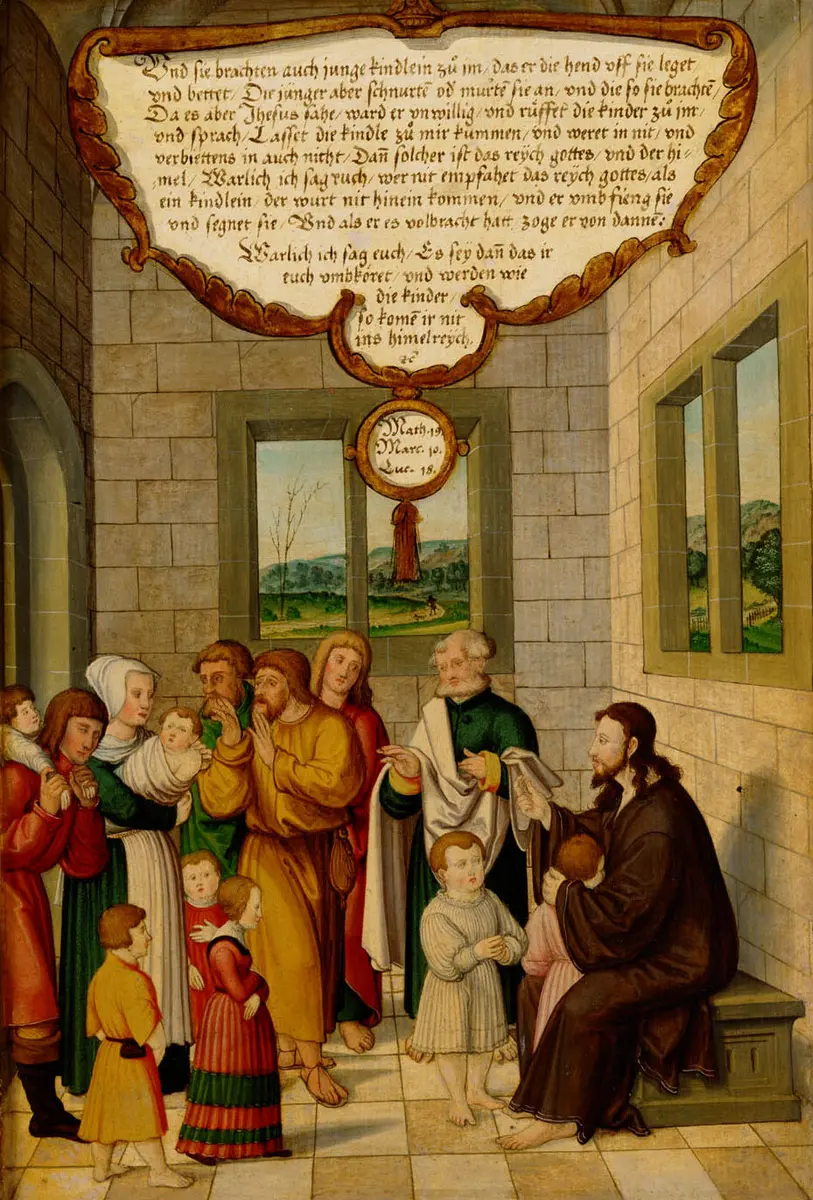 Vnd sie brachten auch junge kindlein zů jm / das er die hend vff sie leget
vnd bettet / Die jünger aber schnurtē od murtē sie an / vnd die so sie brachtē /
Da es aber Jhesus sahe / ward er vnwillig / vnd růffet die kinder zů jm /
vnd sprach / Lasset die kindle zů mir kummen / vnd weret in nit / vnd
verbiettens in auch nitht / Dañ solcher ist das reÿch gottes / vnd der hi=
mel / Warlich ich sag euch / wer nit empfahet das reÿch gottes / als
ein kindlein / der wurt nit hinein kommen / vnd er vmbfieng sie
vnd segnet sie / Vnd als er es volbracht hatt zoge er von dannē:
Warlich ich sag euch / Es seÿ dañ das ir
euch vmbkōret / vnd werden wie
die kinder /
so komē ir nit
ins himelreÿch.
ꝛc
Math. 19.
Marc. 10.
Luc. 18.